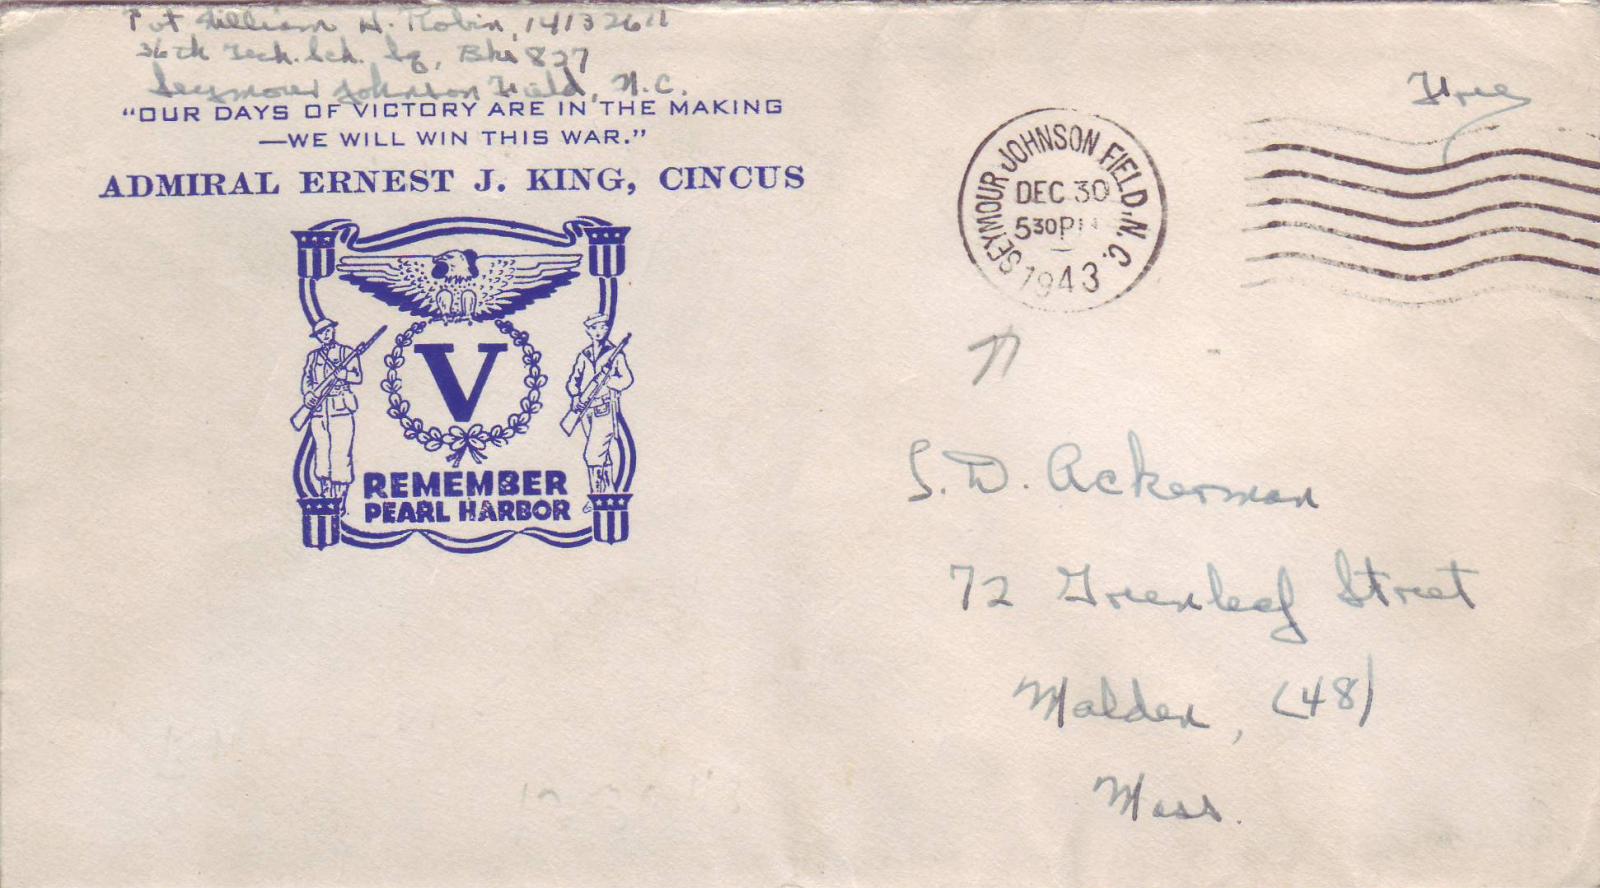 Pvt William H. Robin, 14132611
36th Tech. Sch. Sq, Bks 827
Seymour Johnson Field, N.C.
"OUR DAYS OF VICTORY ARE IN THE MAKING
—WE WILL WIN THIS WAR."
ADMIRAL ERNEST J. KING, CINCUS
V
REMEMBER
PEARL HARBOR
Free
SEYMOUR JOHNSON FIELD, N.C.
DEC 30
530PM
1943
S. D. Ackerman
72 Greenleaf Street
Malden, (48)
Mass.